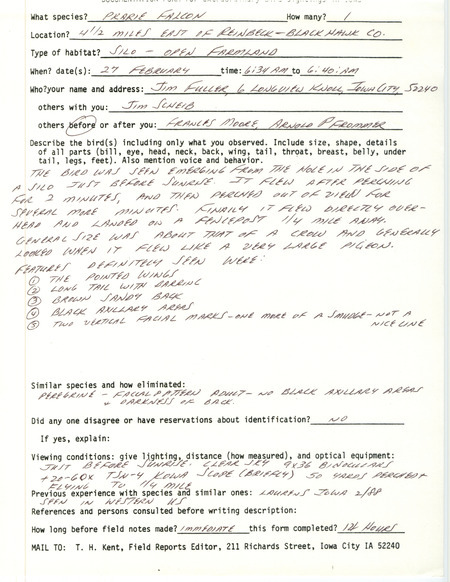 What species? PRARIE FALCON How many? 1
Location? 4 1/2 MILES EAST OF REINBECK - BLACK HAWK CO.
Type of habitat? SILO - OPEN FARMLAND
When? date(s): 27 FEBRUARY time: 6:34 AM to 6:40:AM
Who?your name and address: JIM FULLER, 6 LONGVIEW KNOLL, IOWA CITY 52240
others with you: JIM SCHEIB
others before or after you: FRANCES MOORE, ARNOLD P FROMMER
Describe the bird(s) including only what you observed. Include size, shape, details
of all parts (bill, eye, head, neck, back, wing, tail, throat, breast, belly, under
tail, legs, feet). Also mention voice and behavior.
THE BIRD WAS SEEN EMERGING FROM THE HOLE IN THE SIDE OF
A SILO JUST BEFORE SUNRISE. IT FLEW AFTER PERCHING
FOR 2 MINUTES, AND THEN PERCHED OUT OF VIEW FOR
SEVERAL MORE MINUTES. FINALLY IT FLEW DIRECTLY OVER-
HEAD AND LANDED ON A FENCEPOST 1/4 MILE AWAY.
GENERAL SIZE WAS ABOUT THAT OF A CROW AND GENERALLY
LOOKED WHEN IT FLEW LIKE A VERY LARGE PIGEON.
FEATURES DEFINITELY SEEN WERE:
① THE POINTED WINGS
② LONG TAIL WITH BARRING
③ BROWN SANDY BACK
④ BLACK AXILLARY AREAS
⑤ TWO VERTICAL FACIAL MARKS - ONE MORE OF A SMUDGE - NOT A
NICE LINE
Similar species and how eliminated:
PEREGRINE - FACIAL PATTERN ADULT - NO BLACK AXILLARY AREAS
& DARKNESS OF BACK.
Did any one disagree or have reservations about identification? NO
If yes, explain:
Viewing conditions: give lighting, distance (how measured), and optical equipment:
JUST BEFORE SUNRISE. CLEAR SKY 9X36 BINOCULARS
+ 20-60X TSN-4 KOWA SCOPE (BRIEFLY) 50 YARDS PERCHED +
FLYING TO 1/4 MILE
Previous experience with species and similar ones: LAURENS IOWA 2/88
SEEN IN WESTERN US
References and persons consulted before writing description:
How long before field notes made? IMMEDIATE this form completed? 12 HOURS
MAIL TO: T. H. Kent, Field Reports Editor, 211 Richards Street, Iowa City IA 52240